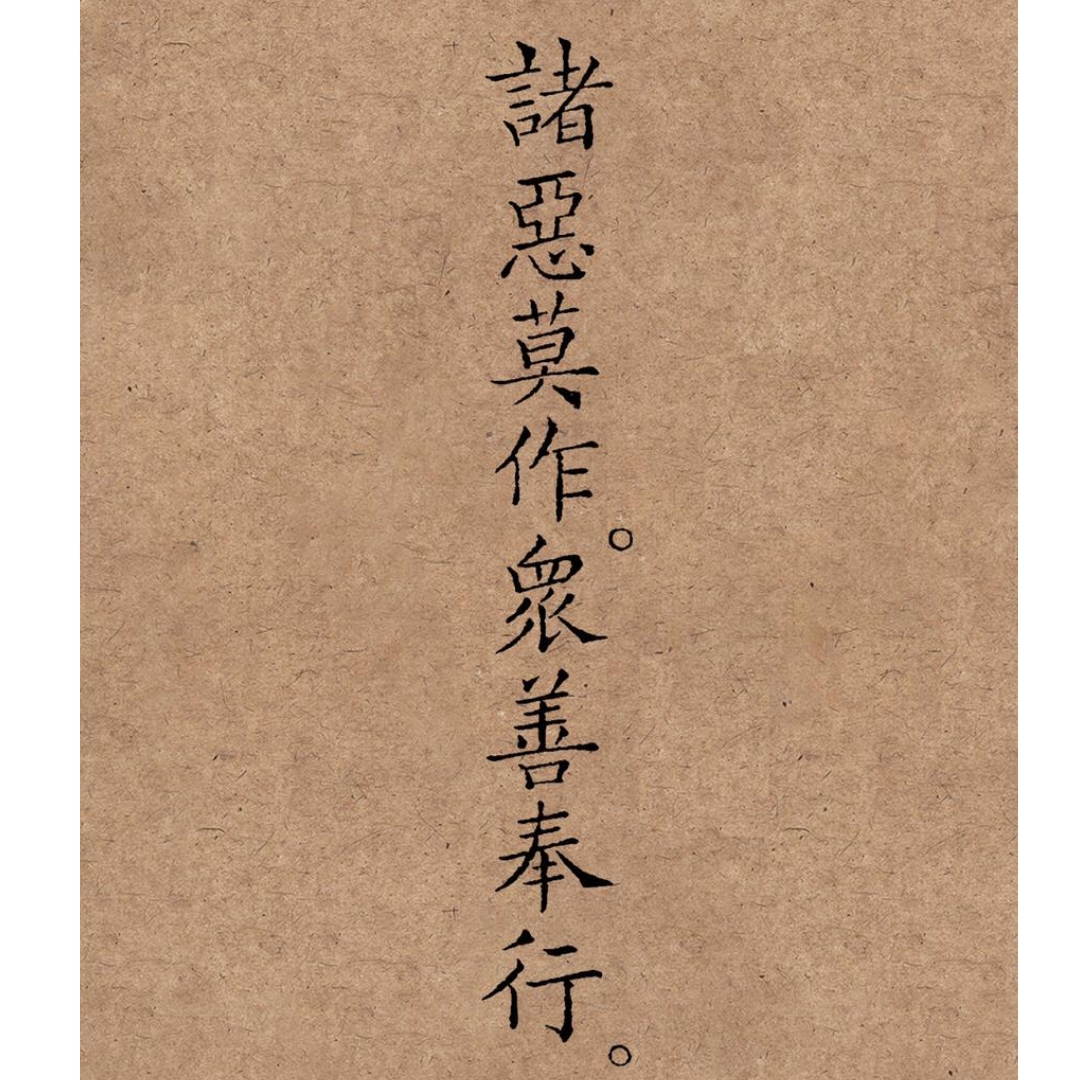 諸惡莫作。眾善奉行。